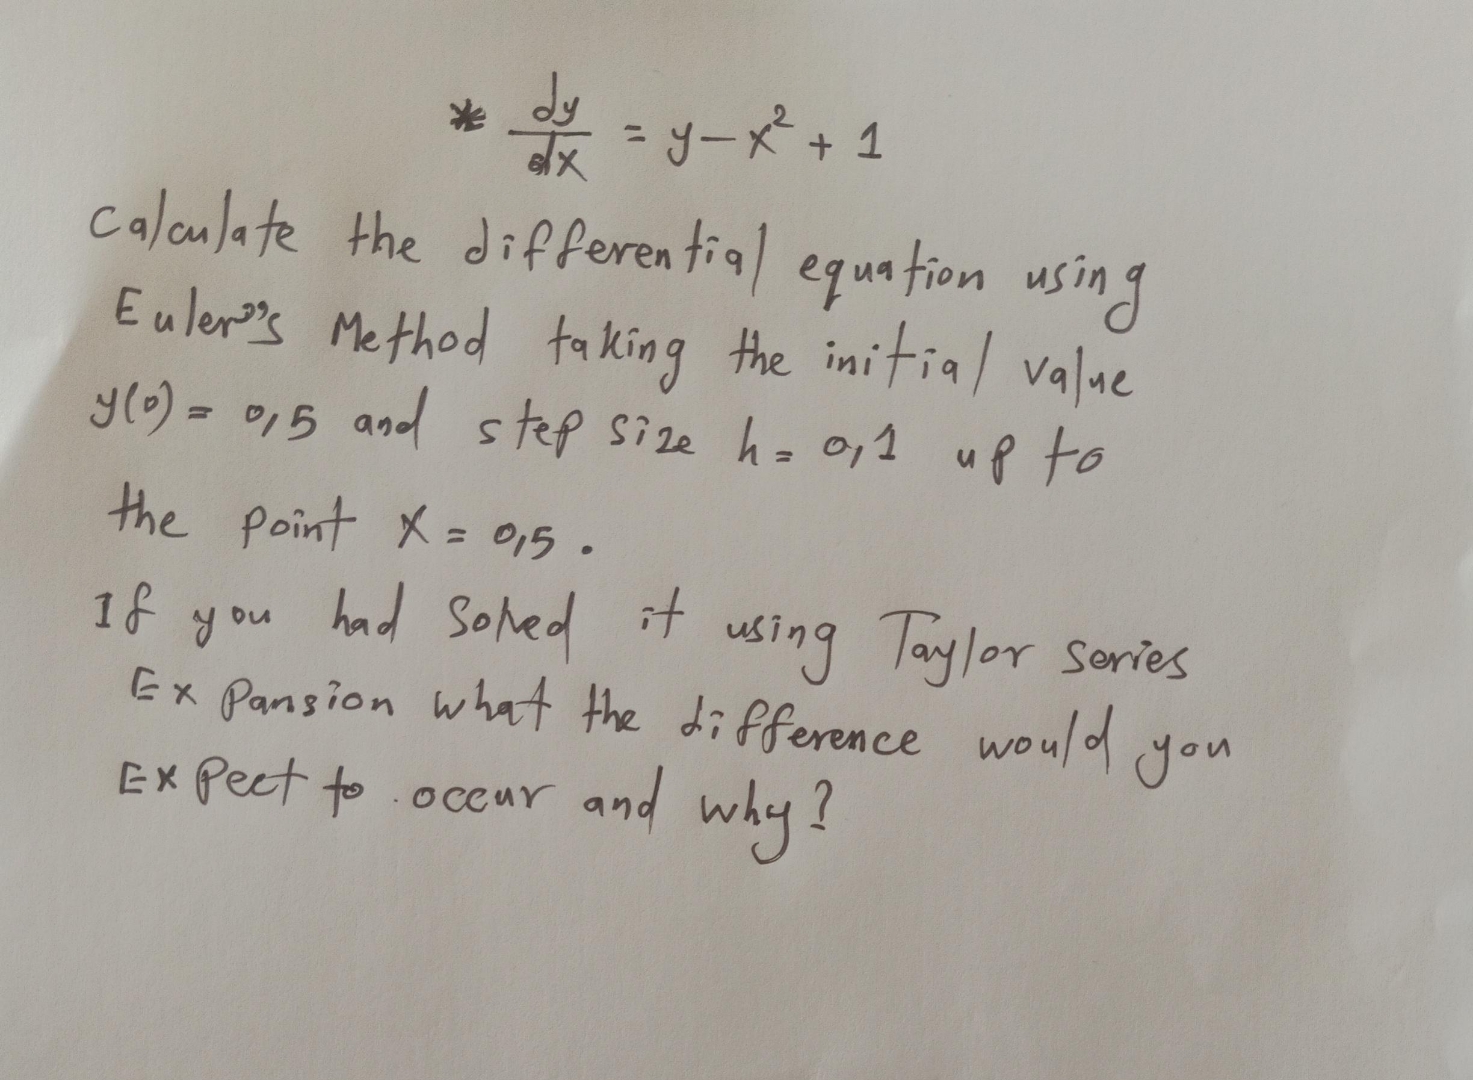 * dy/dx = y - x² + 1
Calculate the differential equation using
Euler's Method taking the initial value
y(0) = 0,5 and step size h = 0,1 up to
the point x = 0,5.
If you had Solved it using Taylor series
Expansion what the difference would you
Expect to occur and why?